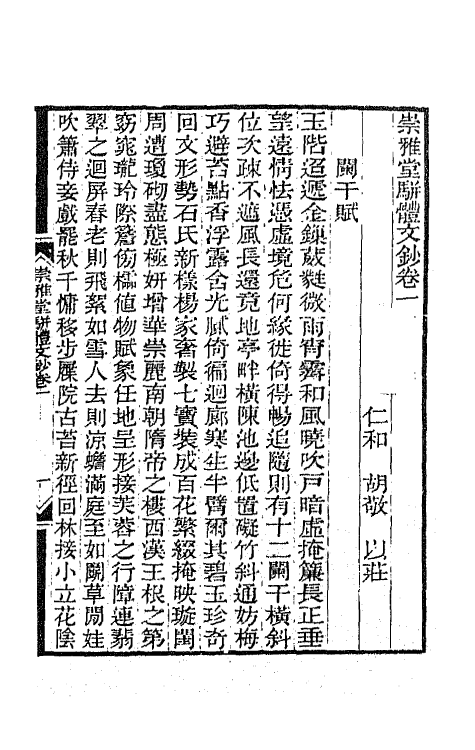 崇雅堂駢體文鈔卷一
仁和 胡敬 以莊
闌干賦
玉階迢遞金鎖葳蕤微雨宵霽和風曉吹戸暗虛掩簾長正垂
望遠情怯憑虛境危何緣徙倚得暢追隨則有十二闌干橫斜
位次疎不遮風長還竟地亭畔橫陳池邊低置礙竹斜通妨梅
巧避苔點香浮露含光膩倚徧迴廊寒生半臂爾其碧玉珍奇
回文形勢石氏新樣楊家奢製七寶裝成百花縈綴掩映璇閨
周遭瓊砌盡態極妍增華崇麗南朝隋帝之樓西漢王根之第
窈窕瓏玲際簷筯檽值物賦象任地呈形接芙蓉之行障連翡
翠之迴屏春老則飛絮如雪人去則涼蟾滿庭至如鬭草閒娃
吹簫侍妾戲罷秋千慵移步屧院古苔新徑回林接小立花陰
崇雅堂駢體文鈔卷一
一